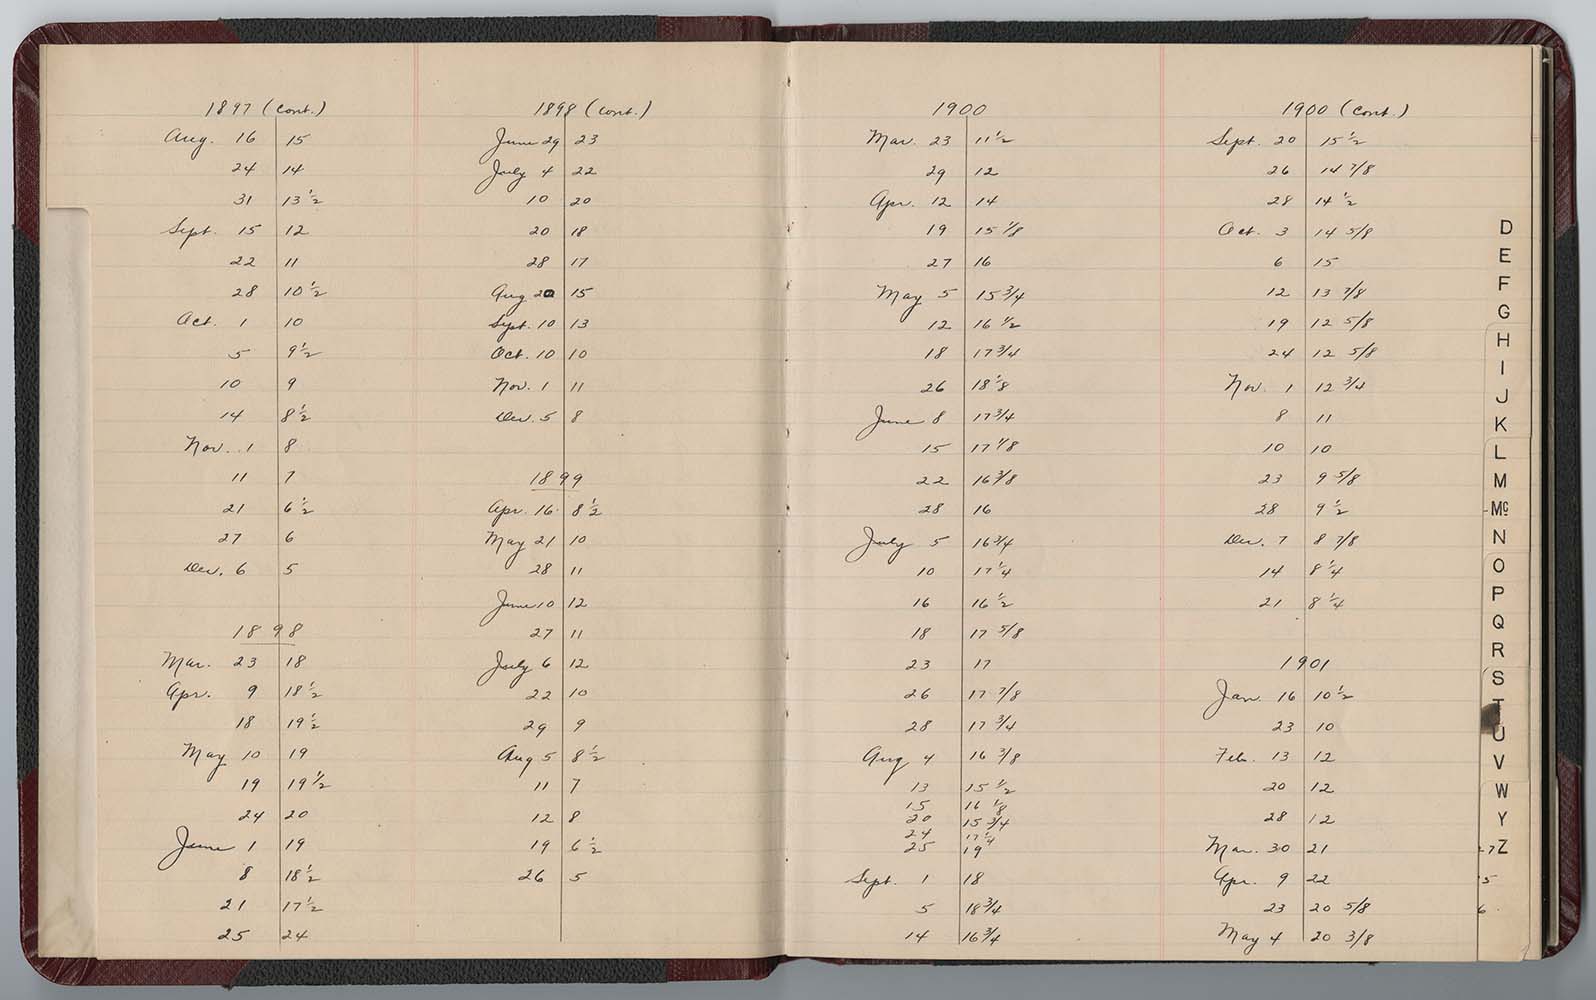 1897 (Cont.)
Aug. 16 15
24 14
31 13 1/2
Sept. 15 12
22 11
28 10 1/2
Oct. 1 10
5 9 1/2
10 9
14 8 1/2
Nov. 1 8
11 7
21 6 1/2
27 6
Dec. 6 5
1898
Mar. 23 18
Apr. 9 18 1/2
18 19 1/2
May 10 19
19 19 1/2
24 20
June 1 19
8 18 1/2
21 17 1/2
25 24
1898 (Cont.)
June 29 23
July 4 22
10 20
20 18
28 17
Aug 20 15
Sept. 10 13
Oct. 10 10
Nov. 1 11
Dec. 5 8
1899
Apr. 16 8 1/2
May 21 10
28 11
June 10 12
27 11
July 6 12
22 10
29 9
Aug 5 8 1/2
11 7
12 8
19 6 1/2
26 5
1900
Mar. 23 11 1/2
29 12
Apr. 12 14
19 15 1/8
27 16
May 5 15 3/4
12 16 1/2
18 17 3/4
26 18 1/8
June 8 17 3/4
15 17 1/8
22 16 3/8
28 16
July 5 16 3/4
10 17 1/4
16 16 1/2
18 17 5/8
23 17
26 17 7/8
28 17 3/4
Aug 4 16 3/8
13 15 1/2
15 16 1/8
20 15 3/4
24 17 1/4
25 19
Sept. 1 18
5 18 3/4
14 16 3/4
1900 (Cont.)
Sept. 20 15 1/2
26 14 7/8
28 14 1/2
Oct. 3 14 5/8
6 15
12 13 7/8
19 12 5/8
24 12 5/8
Nov. 1 12 3/4
8 11
10 10
23 9 5/8
28 9 1/2
Dec. 7 8 7/8
14 8 1/4
21 8 1/4
1901
Jan. 16 10 1/2
23 10
Feb. 13 12
20 12
28 12
Mar. 30 21
Apr. 9 22
23 20 5/8
May 4 20 3/8
D
E
F
G
H
I
J
K
L
M
Mc
N
O
P
Q
R
S
T
U
V
W
Y
Z